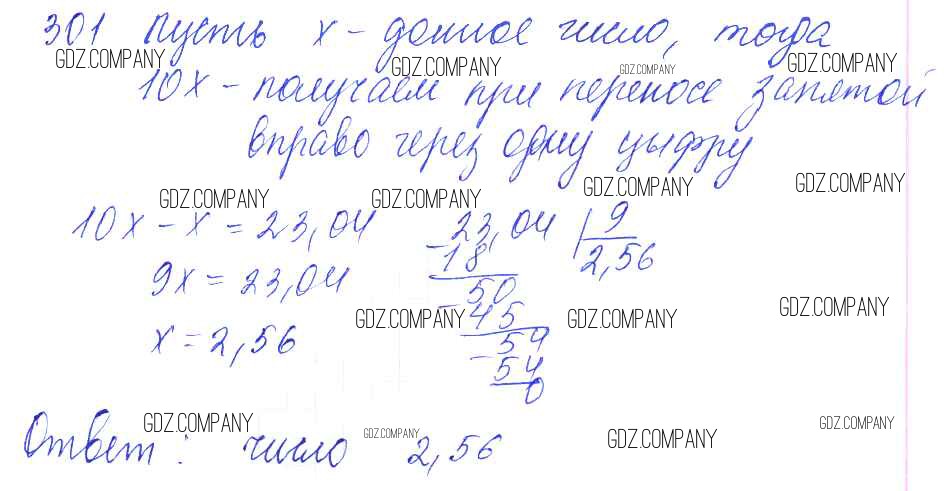 301 Пусть х - данное число, тогда
GDZ.COMPANY GDZ.COMPANY GDZ.COMPANY GDZ.COMPANY
10х - получаем при переносе запятой
вправо через одну цыфру
GDZ.COMPANY GDZ.COMPANY GDZ.COMPANY GDZ.COMPANY
10х - х = 23,04
9х = 23,04
х = 2,56
23,04 | 9
- 18 2,56
50
- 45
54
- 54
0
GDZ.COMPANY GDZ.COMPANY GDZ.COMPANY
GDZ.COMPANY GDZ.COMPANY GDZ.COMPANY GDZ.COMPANY
Ответ: число 2,56